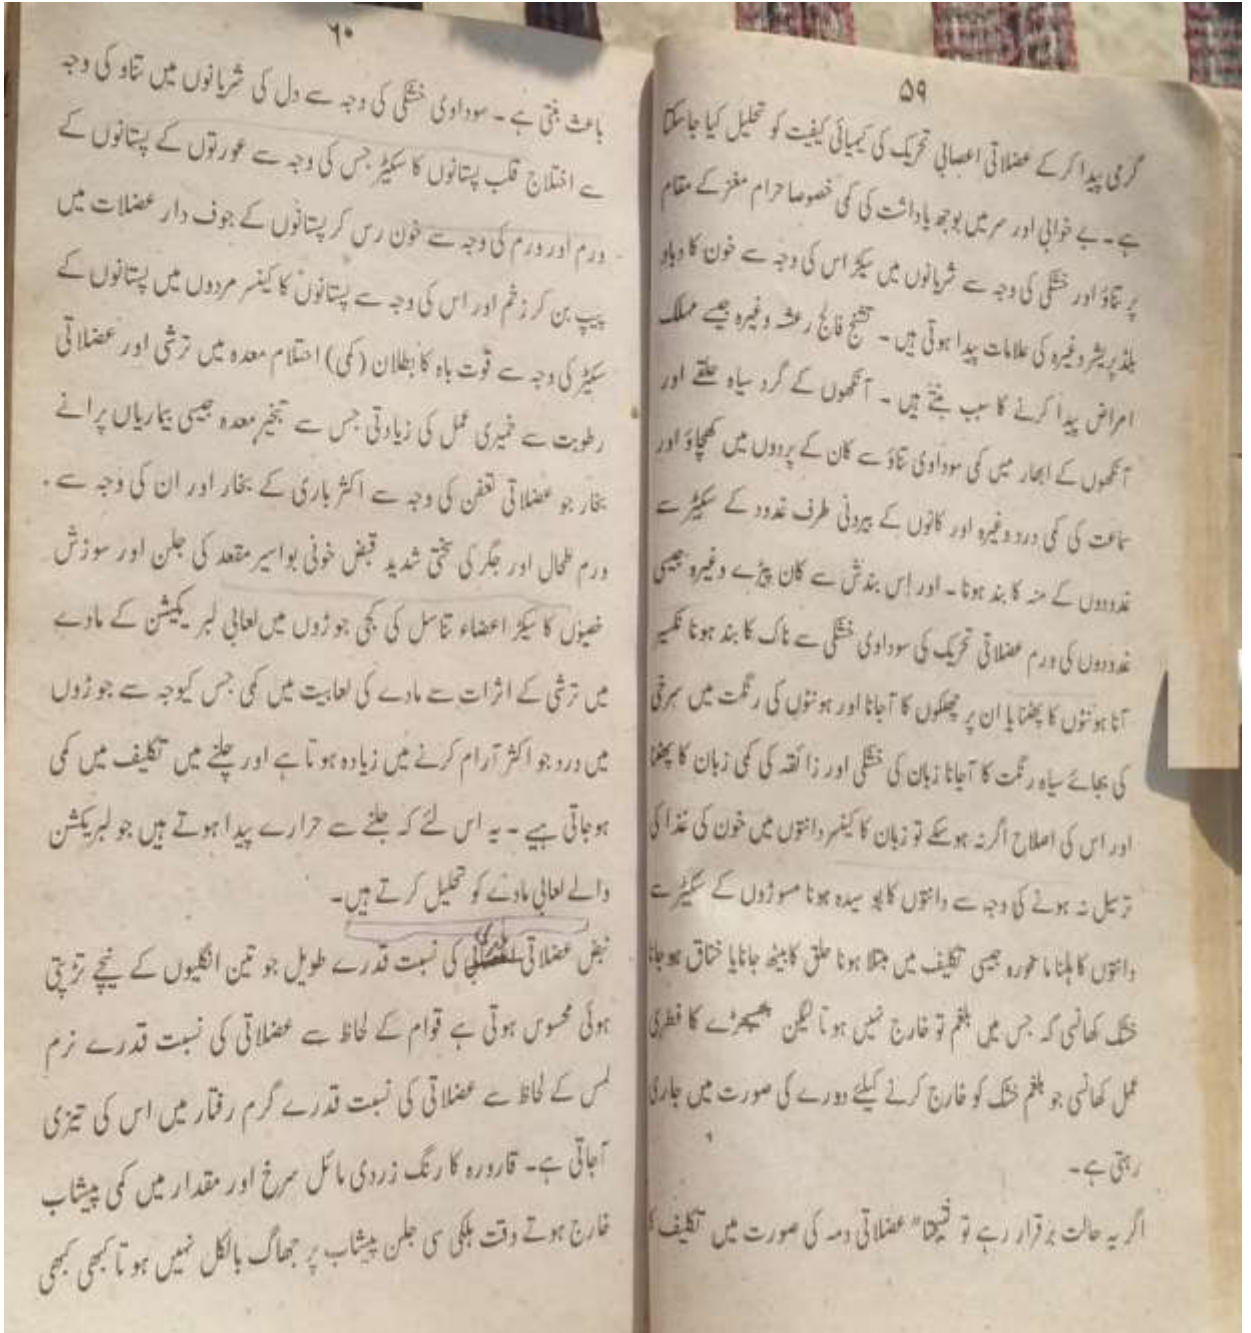 ۵۹
گرمی پیدا کرکے عضلاتی اعصابی تحریک کی کیمیائی کیفیت کو تحلیل کیا جاسکتا
ہے۔ بے خوابی اور سر میں بوجھ یاداشت کی کمی خصوصا حرام مغز کے مقام
پر تناؤ اور خشکی کی وجہ سے شریانوں میں سیکڑ اس کی وجہ سے خون کا دباو
بلڈ پریشر وغیرہ کی علامات پیدا ہوتی ہیں۔ تشنج فالج رعشہ وغیرہ جیسے مہلک
امراض پیدا کرنے کا سبب بنتے ہیں۔ آنکھوں کے گرد سیاہ حلقے اور
آنکھوں کے ابھار میں کمی سوداوی تناؤ سے کان کے پردوں میں کھچاؤ اور
سماعت کی کمی درد وغیرہ اور کانوں کے بیرونی طرف غدود کے سکیڑ سے
غدودوں کے منہ کا بند ہونا۔ اور اس بندش سے کان پیڑے وغیرہ جیسی
غدودوں کی ورم عضلاتی تحریک کی سوداوی خشکی سے ناک کا بند ہونا نکسیر
آنا ہونٹوں کا پھٹنا یا ان پر چھلکوں کا آجانا اور ہونٹوں کی رنگت میں سرخی
کی بجائے سیاہ رنگت کا آجانا زبان کی خشکی اور زائقہ کی کمی زبان کا پھٹنا
اور اس کی اصلاح اگر نہ ہوسکے تو زبان کا کینسر دانتوں میں خون کی غذا کی
ترسیل نہ ہونے کی وجہ سے دانتوں کا بو سیدہ ہونا مسوڑوں کے سکیڑ سے
دانتوں کا ہلنا ما خورہ جیسی تکلیف میں مبتلا ہونا حلق کا بیٹھ جانا یا خناق ہوجانا
خشک کھانسی کہ جس میں بلغم تو خارج نہیں ہوتا لیکن پھیپھڑے کا فطری
عمل کھانسی جو بلغم خشک کو خارج کرنے کیلئے دورے کی صورت میں جاری
رہتی ہے۔
اگر یہ حالت برقرار رہے تو نتیجتا" عضلاتی دمہ کی صورت میں تکلیف کا
۶۰
باعث بنتی ہے۔ سوداوی خشکی کی وجہ سے دل کی شریانوں میں تناو کی وجہ
سے اختلاج قلب پستانوں کا سکیڑ جس کی وجہ سے عورتوں کے پستانوں کے
ورم اور ورم کی وجہ سے خون رس کر پستانوں کے جوف دار عضلات میں
پیپ بن کر زخم اور اس کی وجہ سے پستانوں کا کینسر مردوں میں پستانوں کے
سکیڑ کی وجہ سے قوت باہ کا بطلان (کمی) احتلام معدہ میں ترشی اور عضلاتی
رطوبت سے خمیری عمل کی زیادتی جس سے تبخیر معدہ جیسی بیماریاں پرانے
بخار جو عضلاتی تعفن کی وجہ سے اکثر باری کے بخار اور ان کی وجہ سے
ورم طحال اور جگر کی سختی شدید قبض خونی بواسیر مقعد کی جلن اور سوزش
خصیوں کا سیکڑ اعضاء تناسل کی کجی جوڑوں میں لعابی لبر یکیشن کے مادے
میں ترشی کے اثرات سے مادے کی لعابیت میں کمی جس کیوجہ سے جوڑوں
میں درد جو اکثر آرام کرنے میں زیادہ ہوتا ہے اور چلنے میں تکلیف میں کمی
ہوجاتی ہیے۔ یہ اس لئے کہ چلنے سے حرارے پیدا ہوتے ہیں جو لبریکشن
والے لعابی مادے کو تحلیل کرتے ہیں۔
نبض عضلاتی کی نسبت قدرے طویل جو تین انگلیوں کے نیچے تڑپتی
ہوئی محسوس ہوتی ہے قوام کے لحاظ سے عضلاتی کی نسبت قدرے نرم
لمس کے لحاظ سے عضلاتی کی نسبت قدرے گرم رفتار میں اس کی تیزی
آجاتی ہے۔ قارورہ کا رنگ زردی مائل سرخ اور مقدار میں کمی پیشاب
خارج ہوتے وقت ہلکی سی جلن پیشاب پر جھاگ بالکل نہیں ہوتا کبھی کبھی